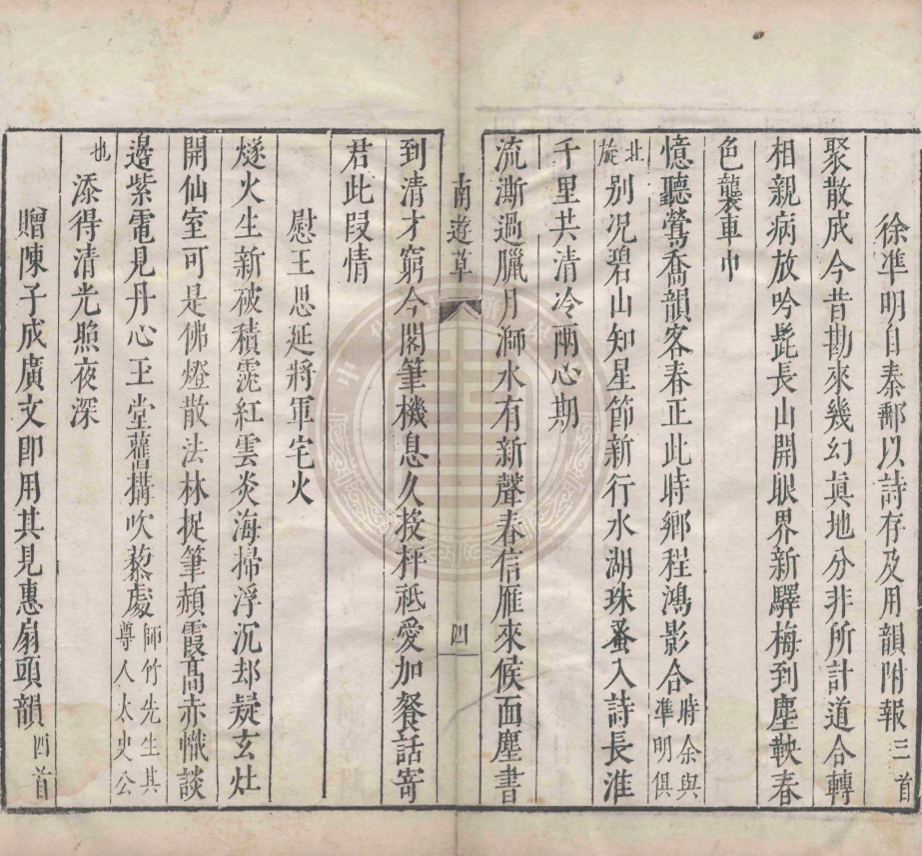 徐凖明自秦郵以詩存及用韻附報三首
聚散成今昔勘來幾幻眞地分非所計道合轉
相親病放吟髭長山開眼界新驛梅到塵鞅春
色襲車巾
憶聽鶯喬韻客春正此時鄉程鴻影合時余與凖明俱
北旋别况碧山知星節新行水湖珠蚤入詩長淮
千里共清冷兩心期
流澌過臘月濎水有新聲春信雁來候面塵書
南遊草 四
到清才窮今閣筆機息久投枰祗愛加餐話寄
君此叚情
慰王思延將軍宅火
燧火生新破積霓紅雲炎海掃浮沉却疑玄灶
開仙室可是佛燈散法林捉筆頳霞高赤幟談
邊紫電見丹心玉堂舊構吹藜處師竹先生其尊人太史公
也添得清光照夜深
贈陳子成廣文即用其見惠扇頭韻四首